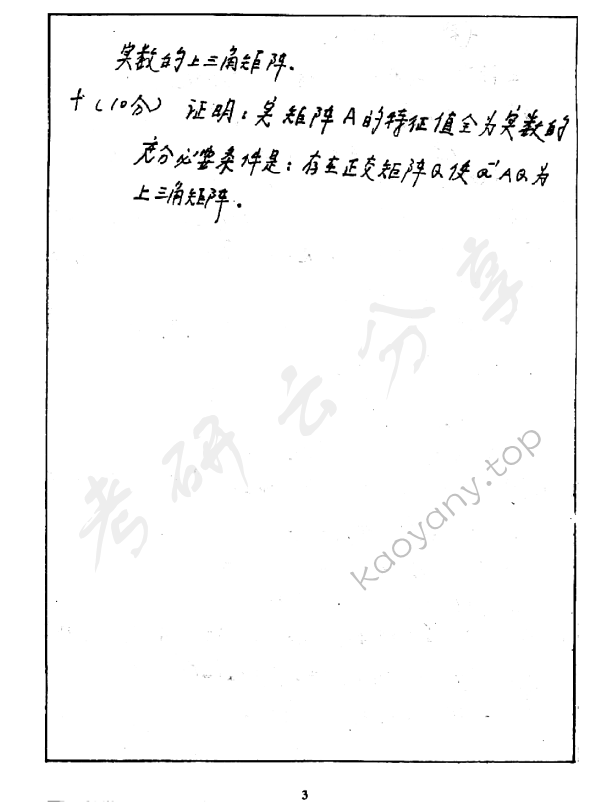 实数的上三角矩阵.
十(10分) 证明:实矩阵A的特征值全为实数的
充分必要条件是:存在正交矩阵Q使Q⁻¹AQ为
上三角矩阵.
考研云分享
kaoyany.top
3